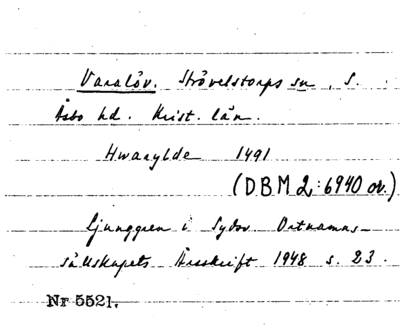 Varalöv. Strövelstorps sn, S.
Åsbo hd. Krist. län.
Hwarylde 1491
(DBM 2:6940 or.)
Ljunggren i Sydsv. Ortnamns-
sällskapets Årsskrift 1948 s. 23.
Nr 5521.